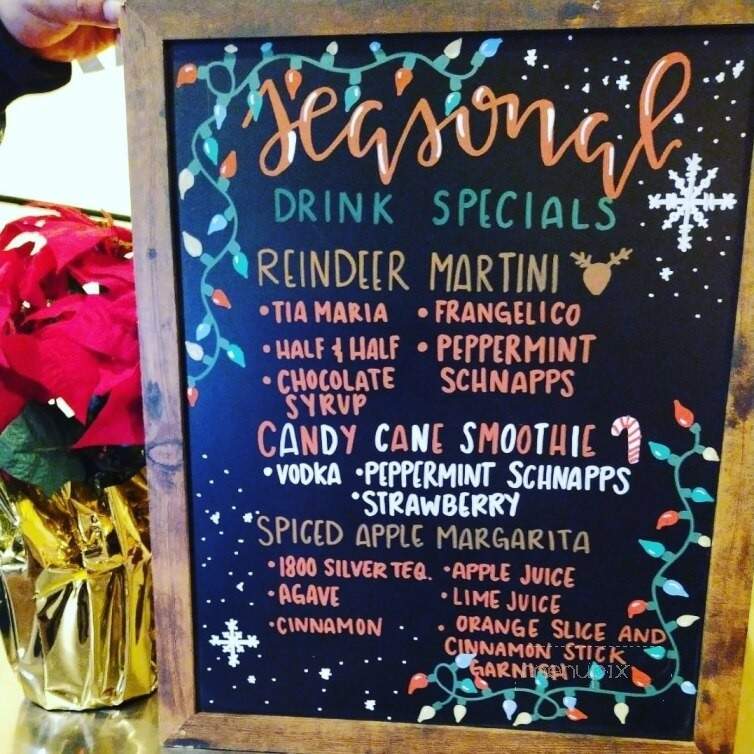 seasonal
DRINK SPECIALS
REINDEER MARTINI
• TIA MARIA • FRANGELICO
• HALF & HALF • PEPPERMINT
• CHOCOLATE SCHNAPPS
SYRUP
CANDY CANE SMOOTHIE
• VODKA • PEPPERMINT SCHNAPPS
• STRAWBERRY
SPICED APPLE MARGARITA
• 1800 SILVER TEQ. • APPLE JUICE
• AGAVE • LIME JUICE
• CINNAMON • ORANGE SLICE AND
CINNAMON STICK
GARNISH
menupix